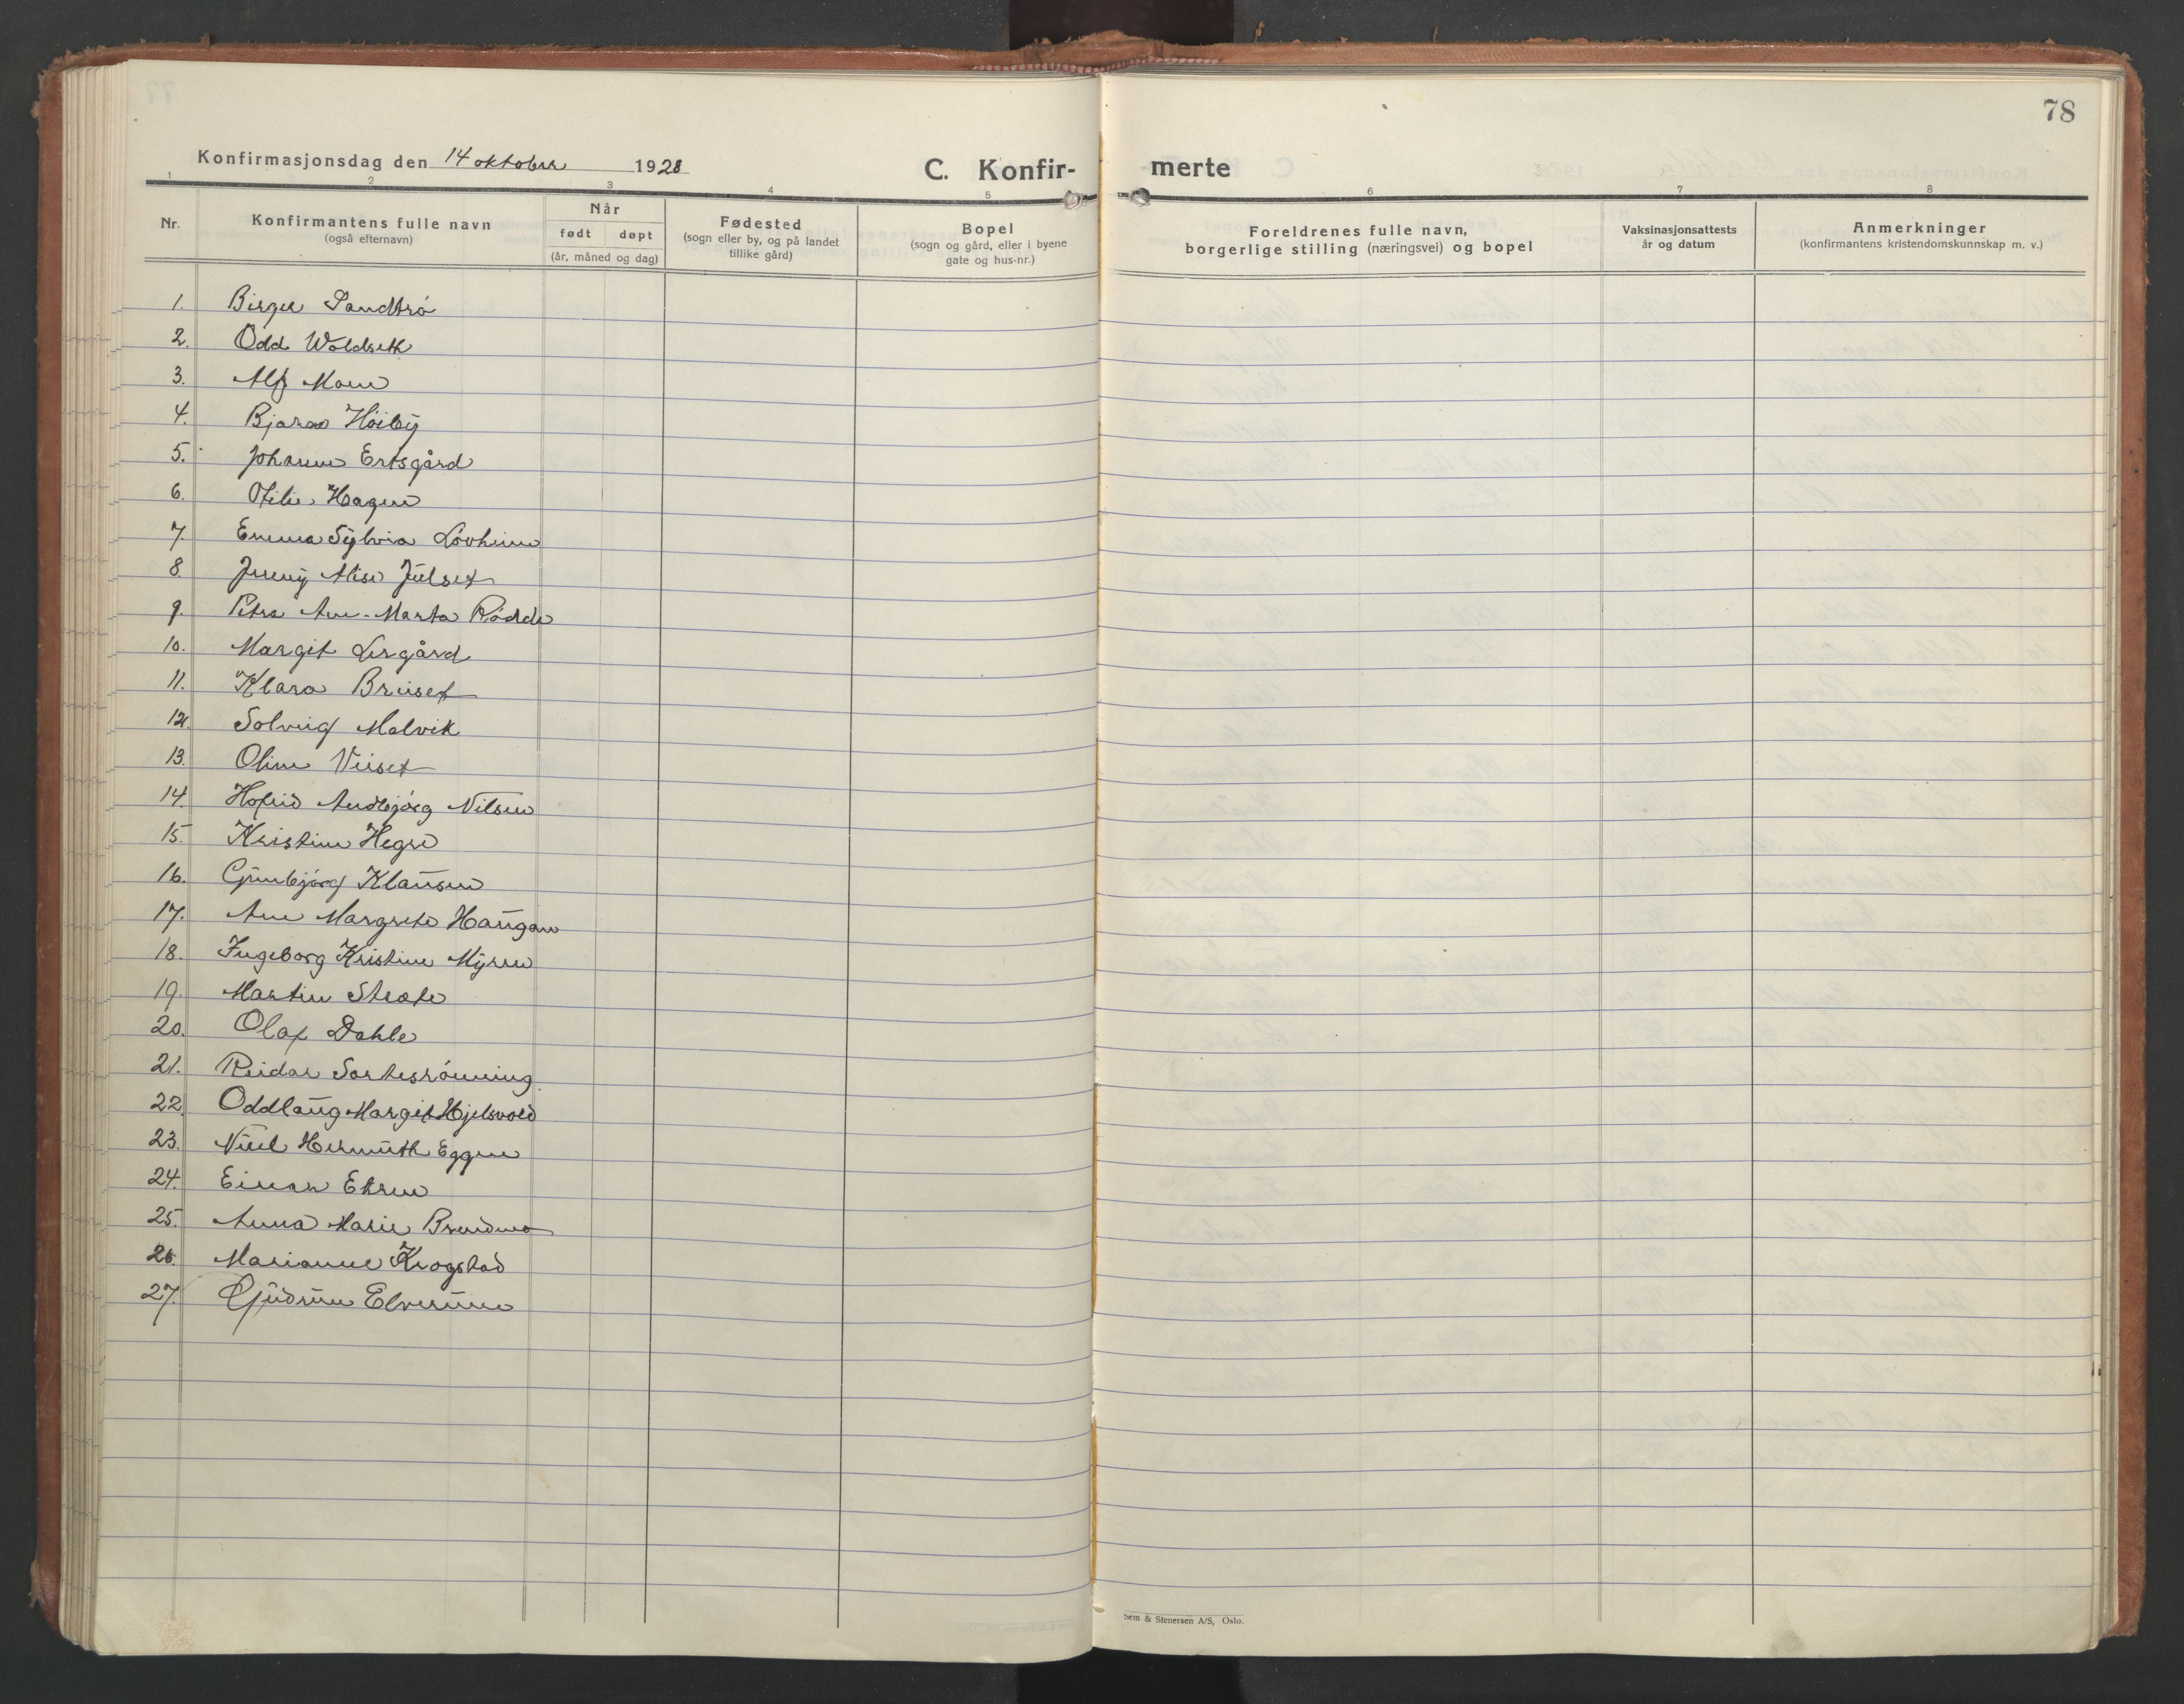 78
Konfirmasjonsdag den 14 oktober 1928
C. Konfir- merte
1 2 3 4 5 6 7 8
Nr.
Konfirmantens fulle navn
(også efternavn)
Når
født døpt
(år, måned og dag)
Fødested
(sogn eller by, og på landet
tillike gård)
Bopel
(sogn og gård, eller i byene
gate og hus-nr.)
Foreldrenes fulle navn,
borgerlige stilling (næringsvei) og bopel
Vaksinasjonsattests
år og datum
Anmerkninger
(konfirmantens kristendomskunnskap m. v.)
1. Birger Sandtrø
2. Odd Woldseth
3. Alf Moen
4. Bjarne Höiby
5. Johanne Ertsgård
6. Otilie Hagen
7. Emma Sylvia Lövheim
8. Jenny Alise Julset
9. Petra Ane-Marta Rödde
10. Margit Lergård
11. Klara Bruset
12. Solveig Malvik
13. Oline Viiset
14. Andbjörg Nilsen
15. Kristine Hegre
16. Gunbjörg Klausen
17. Ane Margrete Haugan
18. Ingeborg Kristine Myren
19. Martin Stræte
20. Olaf Dahle
21. Reidar Sortesrönning
22. Oddlaug Margit Hjelsvold
23. Hermuth Eggen
24. Einar Ekren
25. Anna Marie Brendmo
26. Marianne Krogstad
27. Gudrun Elverum
Sem & Stenersen A/S, Oslo.